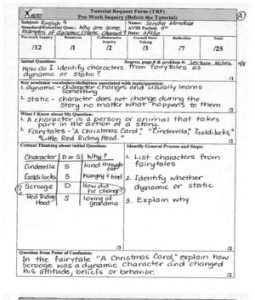 Tutorial Request Form (TRF)
Pre-Work Inquiry (Before the Tutorial)
A
Subject: English 9
Name:
examples of dynamic/static characters?
Date:
Pre-work Inquiry
Resources
Collaborative Inquiry
Reflection
Total
/12
/1
/2
/3
/7
/25
Initial Question:
Source, page # & problem #: Lecture Notes
How do I identify characters from fairytales as
dynamic or static?
Key academic vocabulary/definition associated with topic/question:
1. dynamic - character changes and usually learns
something
2. static - character does not change during the
story no matter what happens to them
What I Know About My Question:
1. A character is a person or animal that takes
part in the action of a story.
2. Fairytales - "A Christmas Carol," "Cinderella," "Goldilocks,"
"Little Red Riding Hood."
Critical Thinking about Initial Question:
Identify General Process and Steps:
Character
D or S
Why?
Cinderella
S
kind
Goldilocks
S
hungry & tired
? Scrooge
D
How did he change? ?
Red Riding Hood
S
loving of grandma
1. List characters from
fairytales
2. Identify whether
dynamic or static
3. Explain why
/3
/2
Question from Point of Confusion:
In the fairytale "A Christmas Carol," explain how
Scrooge was a dynamic character and changed
his attitude, beliefs or behavior.
/2